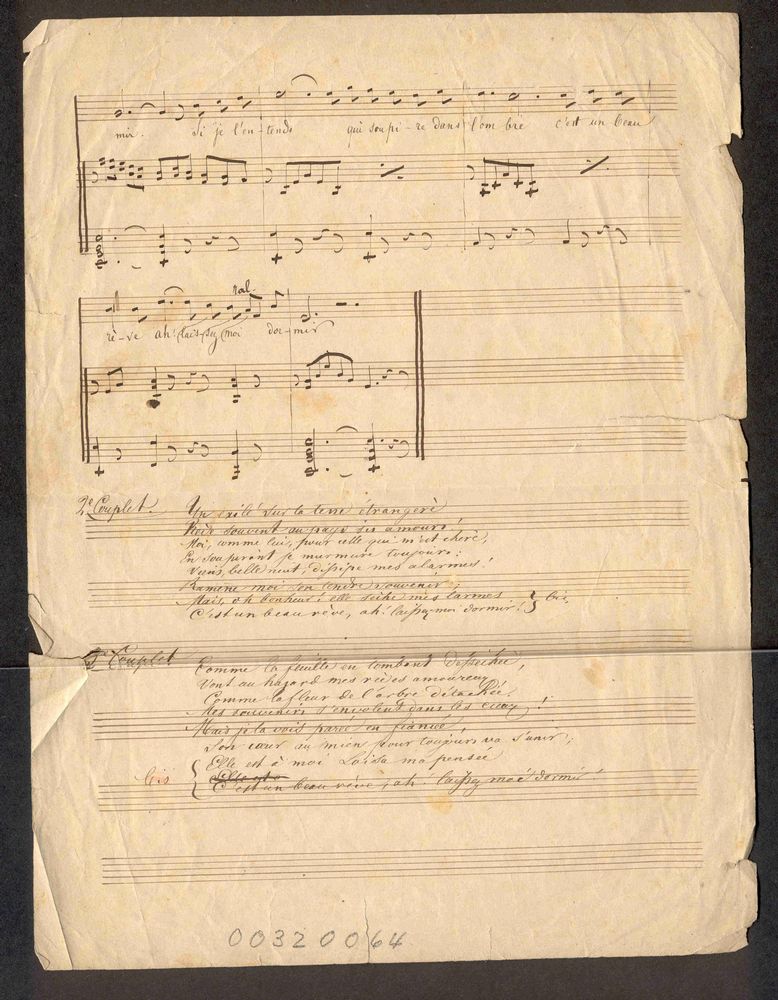 mir. Si je l'en-tends qui soupi-re dans l'om bre c'est un beau
ral.
rê-ve ah! laissez moi dor-mir
2e Couplet. Un exilé sur la terre étrangère
Rêve souvent au pays ses amours!
Moi, comme lui, pour celle qui m'est chère,
En soupirant je murmure toujours:
belle nuit, dissipe mes alarmes!
Ramène moi son tendre souvenir,
Mais, oh bonheur! elle sèche mes larmes
C'est un beau rêve, ah! laissez-moi dormir! } bis,
3e Couplet Comme la feuille en tombant desséchée,
Vont au hazard mes rêves amoureux
Comme la fleur de l'arbre détachée,
Mes souvenirs s'envolent dans les cieux!
Mais je la vois parée en fiancée
Son cœur au mien pour toujours va s'unir;
bis { Elle est à moi Loïsa ma pensée
C'est un beau rêve, ah! laissez moi dormir!
00320064